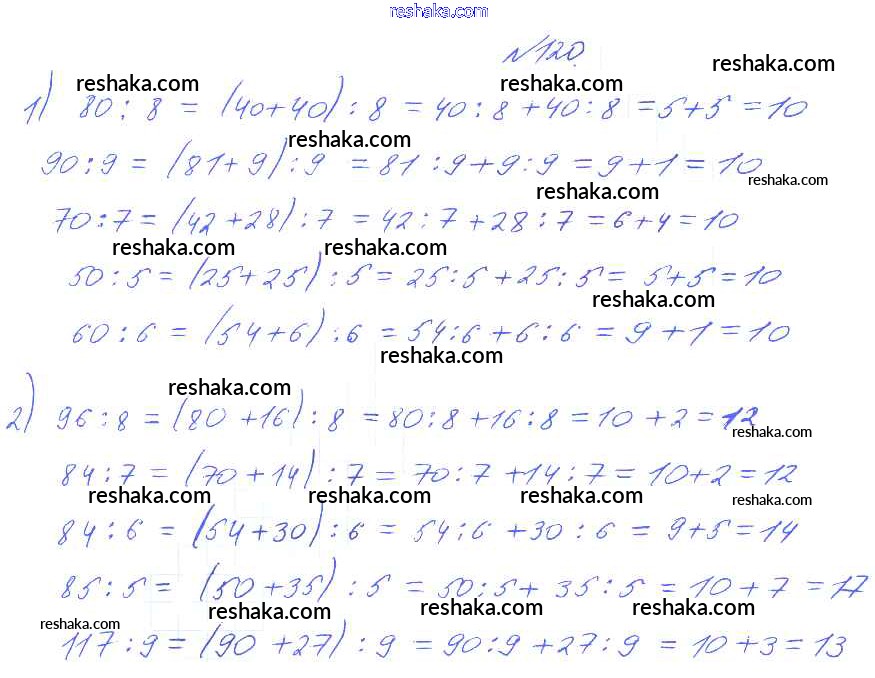 reshaka.com
№120.
reshaka.com reshaka.com reshaka.com
1) 80 : 8 = (40+40) : 8 = 40 : 8 + 40 : 8 = 5+5 = 10
reshaka.com
90 : 9 = (81+9) : 9 = 81 : 9 + 9 : 9 = 9 + 1 = 10
reshaka.com reshaka.com
70 : 7 = (42+28) : 7 = 42 : 7 + 28 : 7 = 6+4 = 10
reshaka.com reshaka.com
50 : 5 = (25+25) : 5 = 25 : 5 + 25 : 5 = 5+5 = 10
reshaka.com
60 : 6 = (54+6) : 6 = 54 : 6 + 6 : 6 = 9 + 1 = 10
reshaka.com
reshaka.com
2) 96 : 8 = (80+16) : 8 = 80 : 8 + 16 : 8 = 10 + 2 = 12
reshaka.com
84 : 7 = (70+14) : 7 = 70 : 7 + 14 : 7 = 10+2 = 12
reshaka.com reshaka.com reshaka.com reshaka.com
84 : 6 = (54+30) : 6 = 54 : 6 + 30 : 6 = 9+5 = 14
85 : 5 = (50+35) : 5 = 50 : 5 + 35 : 5 = 10 + 7 = 17
reshaka.com reshaka.com reshaka.com reshaka.com
117 : 9 = (90+27) : 9 = 90 : 9 + 27 : 9 = 10 + 3 = 13